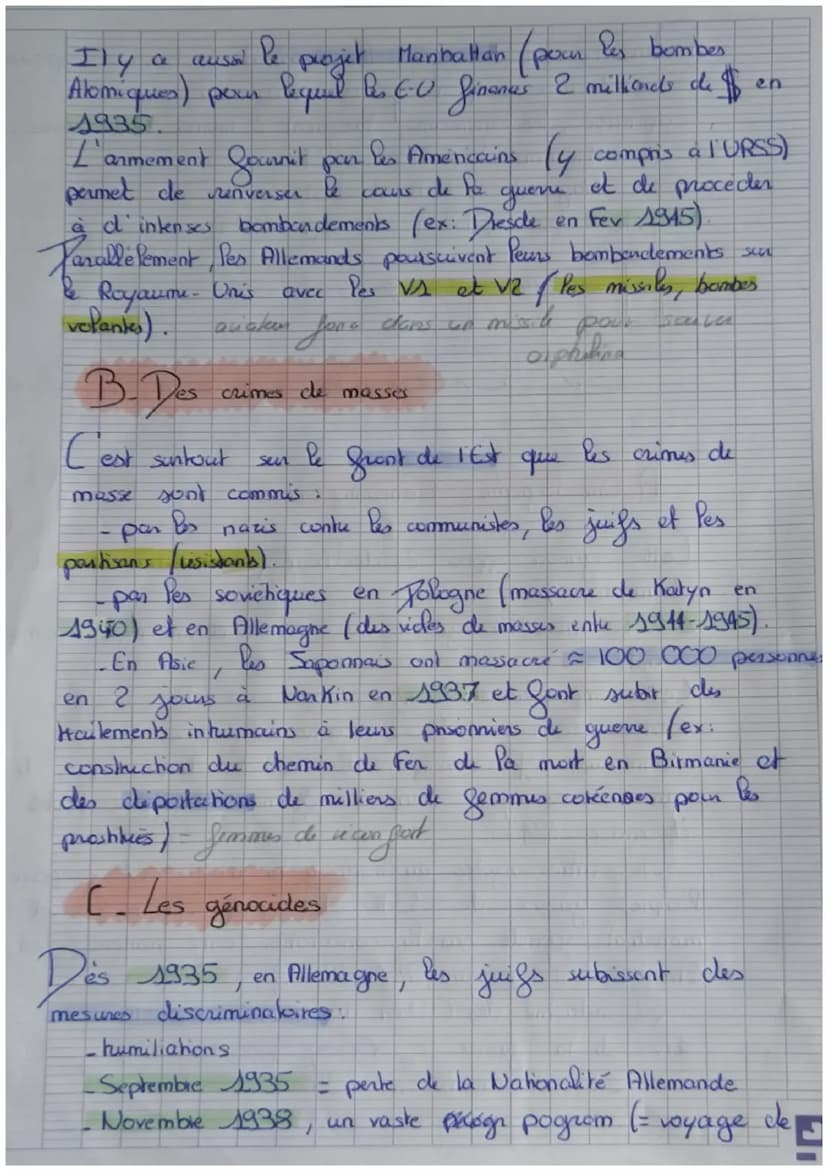 Il y a aussi le projet Manhattan (pour les bombes
Atomiques) pour lequel les E-U finances 2 milliards de $ en
1935.
L'armement fournit par les Américains (y compris à l'URSS)
permet de renverser le cours de la guerre et de proceder
à d'intenses bombardements (ex: Dresde en Fev 1945).
Parallèlement, les Allemands poursuivent leurs bombardements sur
le Royaume-Unis avec les V1 et V2 (les missiles, bombes
volantes). dans un missile pour
orphelina
B- Des crimes de masses
C'est surtout sur le front de l'Est que les crimes de
masse sont commis :
- par les nazis contre les communistes, les juifs et les
partisans (résistants).
- par les soviétiques en Pologne (massacre de Katyn en
1940) et en Allemagne (des viols de masses entre 1944-1945).
- En Asie, les Japonnais ont massacré ≈ 100 000 personnes
en 2 jours à Nankin en 1937 et font subir des
traitements inhumains à leurs prisonniers de guerre (ex:
construction du chemin de fer de la mort en Birmanie et
des déportations de milliers de femmes coréennes pour les
prostituées) = femmes de réconfort
C- Les génocides
Dès 1935, en Allemagne, les juifs subissent des
mesures discriminatoires :
- humiliations
- Septembre 1935 = perte de la Nationalité Allemande
- Novembre 1938, un vaste pogrom (= voyage de